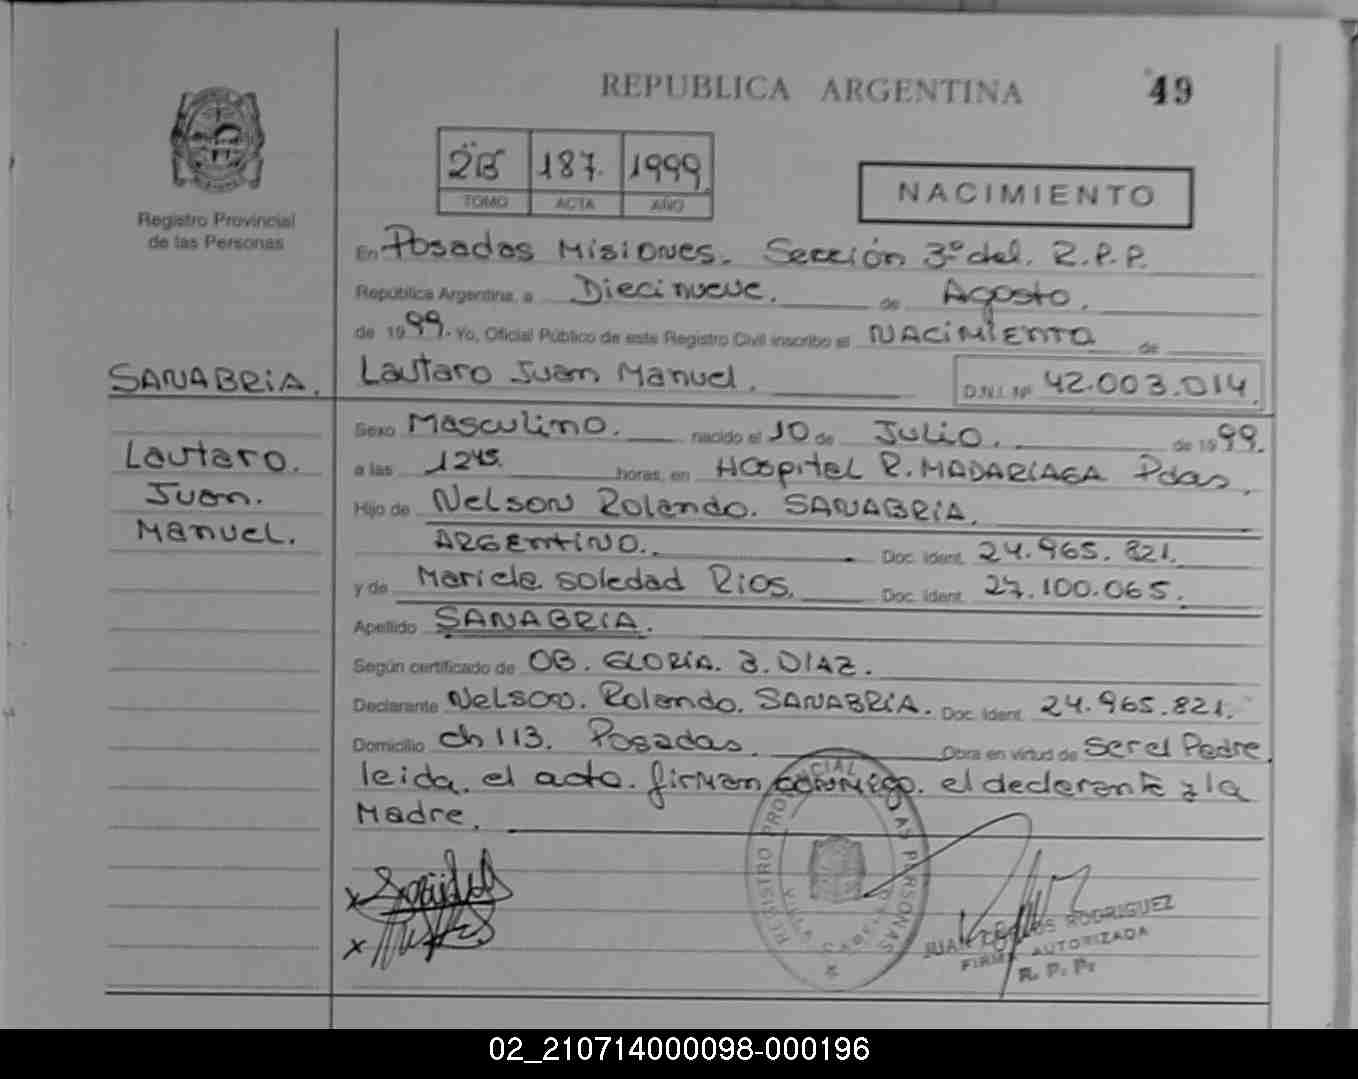 REPUBLICA ARGENTINA
49
Registro Provincial
de las Personas
2B 187. 1999
TOMO ACTA AÑO
NACIMIENTO
En Posadas Misiones. Sección 3º del. R.P.P.
República Argentina, a Diecinueve. de Agosto.
de 1999. Yo, Oficial Público de este Registro Civil inscribo el NACIMIENTO de
SANABRIA. Lautaro Juan Manuel. D.N.I. Nº 42.003.014.
Sexo Masculino. nacido el 10 de Julio. de 1999.
Lautaro. a las 1245. horas, en Hospital R. MADARIAGA Pdas.
Juan. Hijo de Nelson Rolando. SANABRIA.
Manuel. ARGENTINO. Doc. Ident. 24.965.821.
y de Mariela Soledad Rios. Doc. Ident. 27.100.065.
Apellido SANABRIA.
Según certificado de OB. GLORIA. B. DIAZ.
Declarante Nelson. Rolando. SANABRIA. Doc. Ident. 24.965.821.
Domicilio ch 113. Posadas. Obra en virtud de Ser el Padre
leida. el acta. firman conmigo. el declarante y la
Madre.
REGISTRO PROVINCIAL DE LAS PERSONAS
JUAN CARLOS RODRIGUEZ
FIRMA AUTORIZADA
R. P. P.
02_210714000098-000196